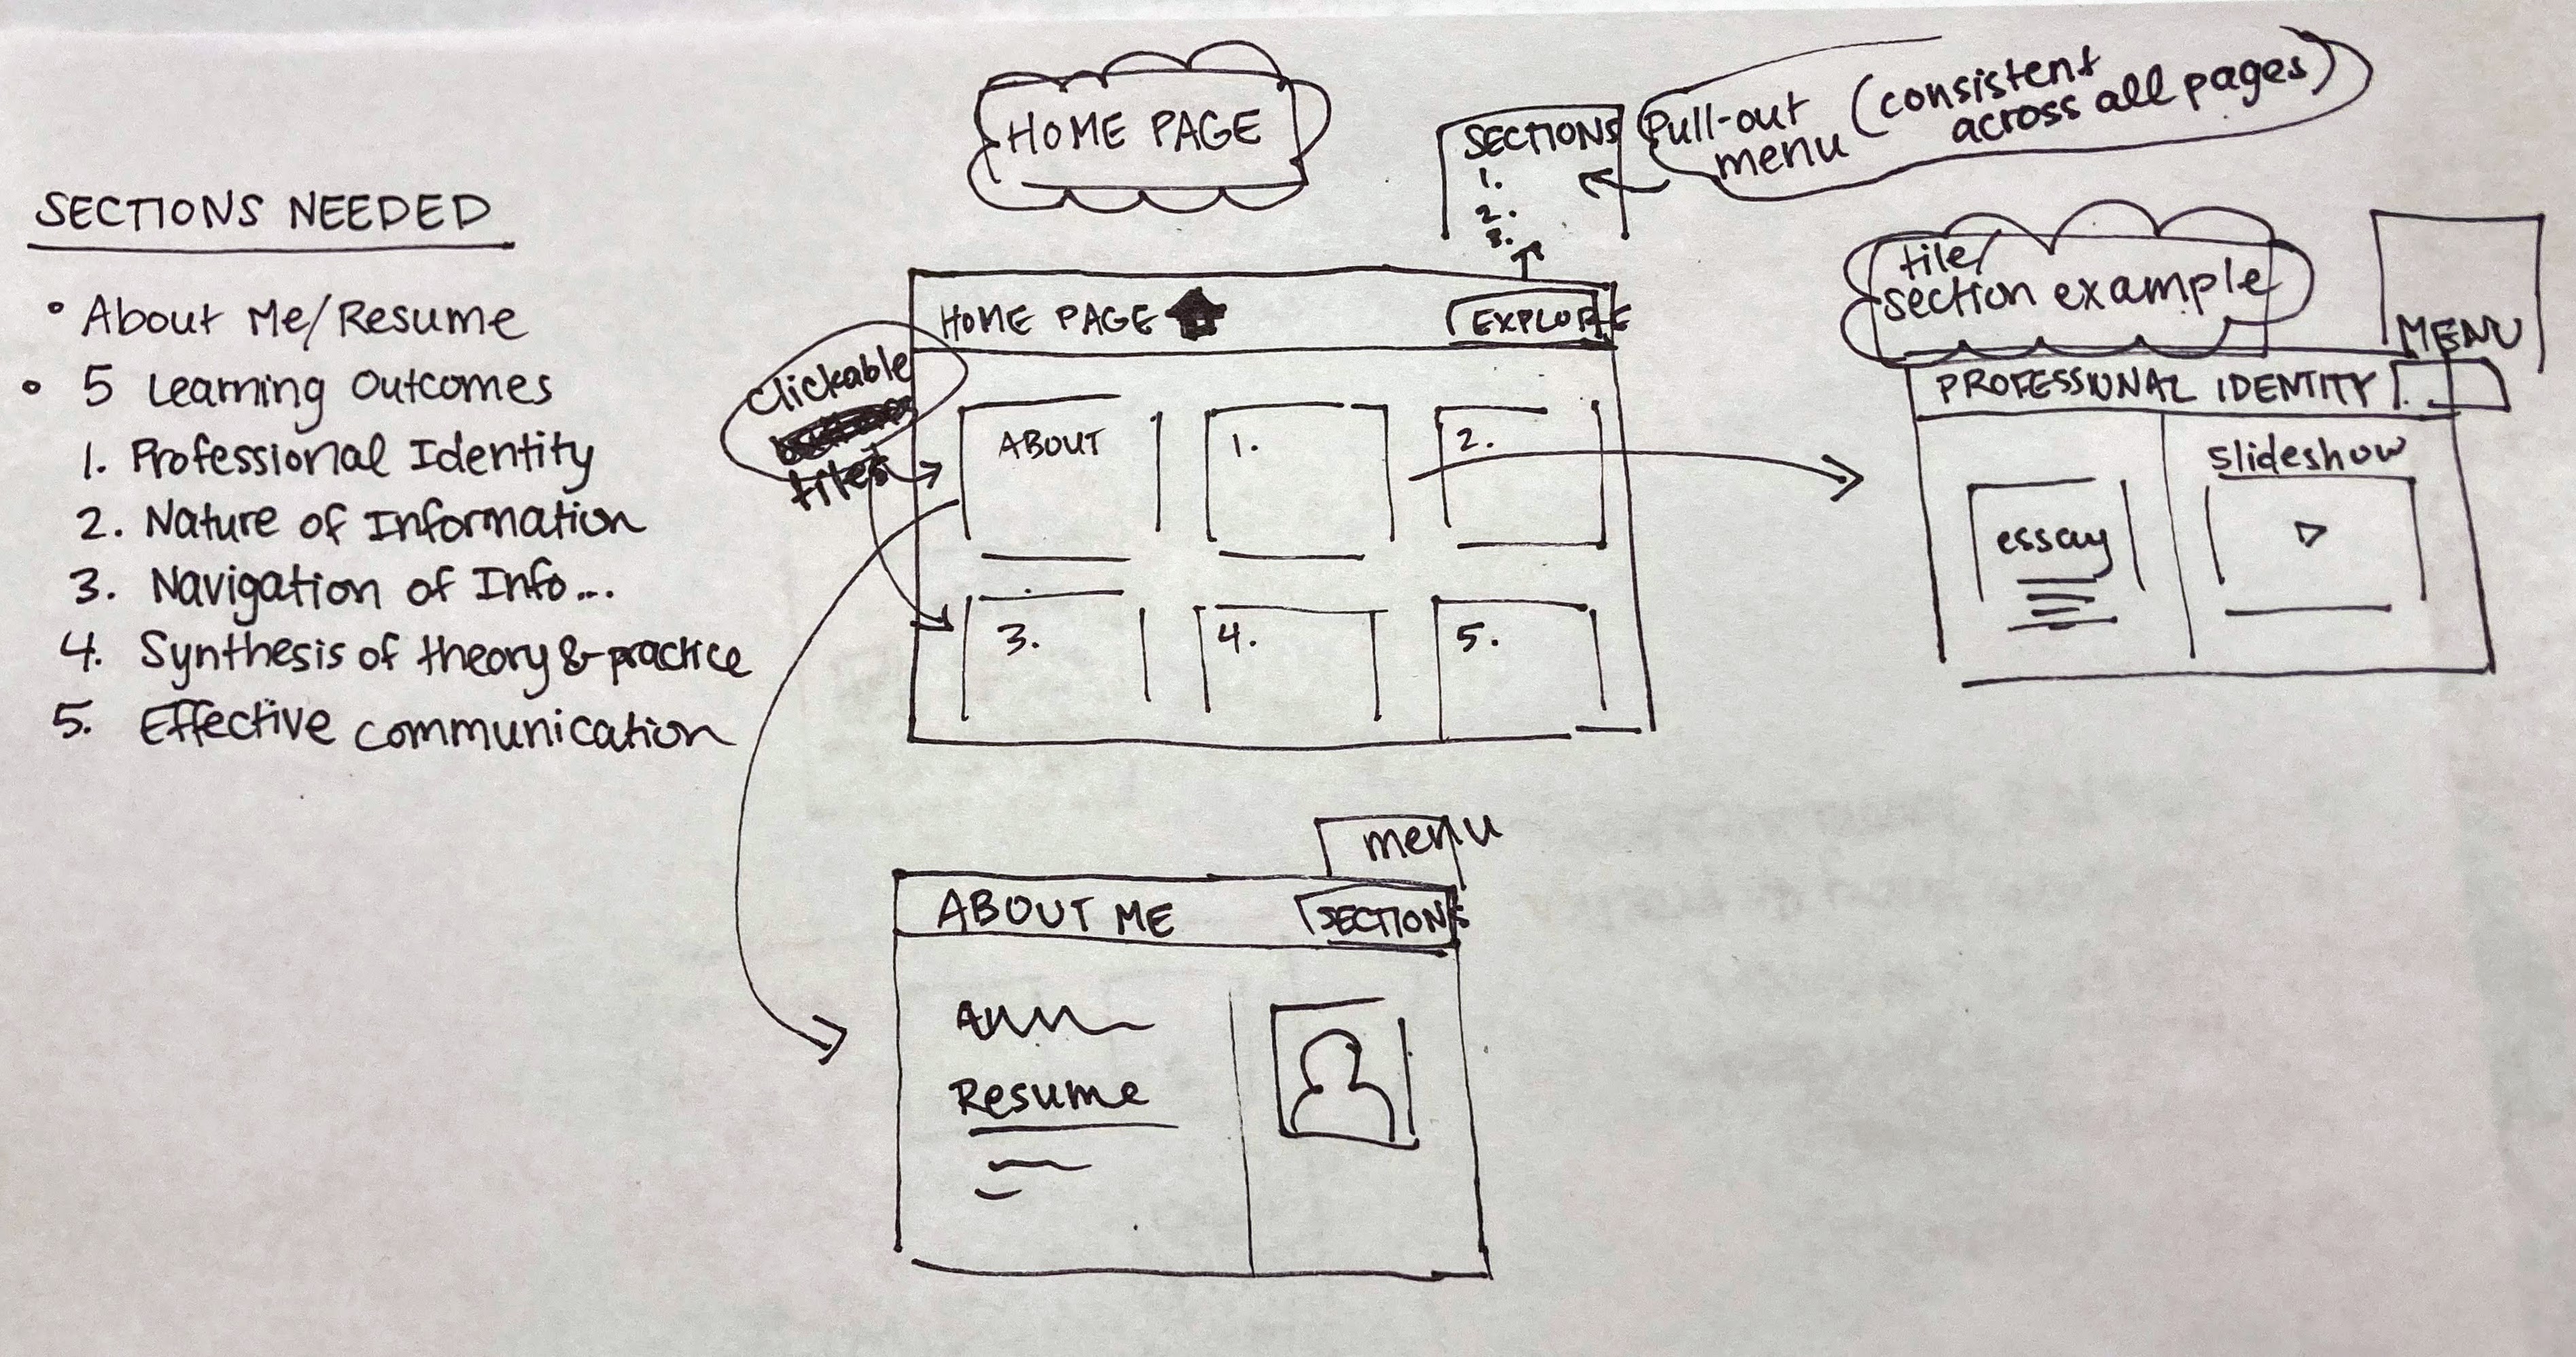 SECTIONS NEEDED
• About Me/Resume
• 5 Learning Outcomes
1. Professional Identity
2. Nature of Information
3. Navigation of Info...
4. Synthesis of theory & practice
5. Effective communication
HOME PAGE
SECTIONS
1.
2.
3.
Pull-out
menu
(consistent
across all pages)
HOME PAGE
EXPLORE
clickable
tiles
ABOUT
1.
2.
3.
4.
5.
tile/
section example
MENU
PROFESSIONAL IDENTITY
essay
slideshow
menu
ABOUT ME
SECTIONS
Resume